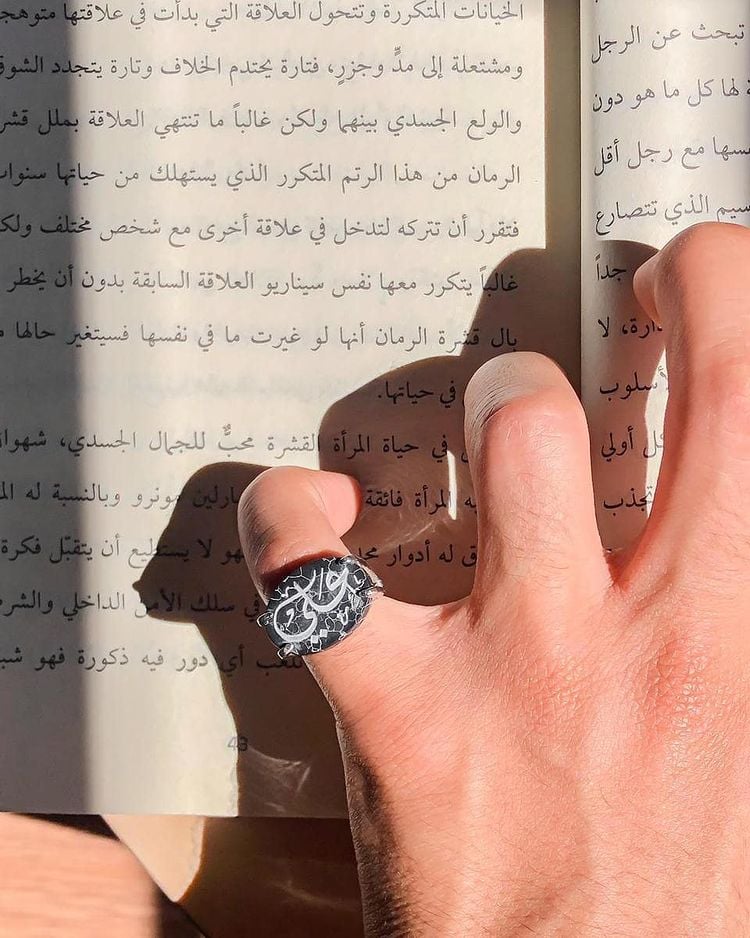 الخيانات المتكررة وتتحول العلاقة التي بدأت في علاقتها متوهجة
ومشتعلة إلى مدٍّ وجزرٍ، فتارة يحتدم الخلاف وتارة يتجدد الشوق
والولع الجسدي بينهما ولكن غالباً ما تنتهي العلاقة بملل قشرة
الرمان من هذا الرتم المتكرر الذي يستهلك من حياتها سنوات
فتقرر أن تتركه لتدخل في علاقة أخرى مع شخص مختلف ولكن
غالباً يتكرر معها نفس سيناريو العلاقة السابقة بدون أن يخطر
بال قشرة الرمان أنها لو غيرت ما في نفسها فسيتغير حالها
في حياتها.
في حياة المرأة القشرة محبٌّ للجمال الجسدي، شهواني
المرأة فائقة مارلين مونرو وبالنسبة له
له أدوار هو لا يستطيع أن يتقبّل فكرة
في سلك الأمن الداخلي والشرطة
تلعب أي دور فيه ذكورة فهو
43
تبحث عن الرجل
لها كل ما هو دون
مع رجل أقل
الذي تتصارع
جداً
لا
أسلوب
أولي
تجذب
علي